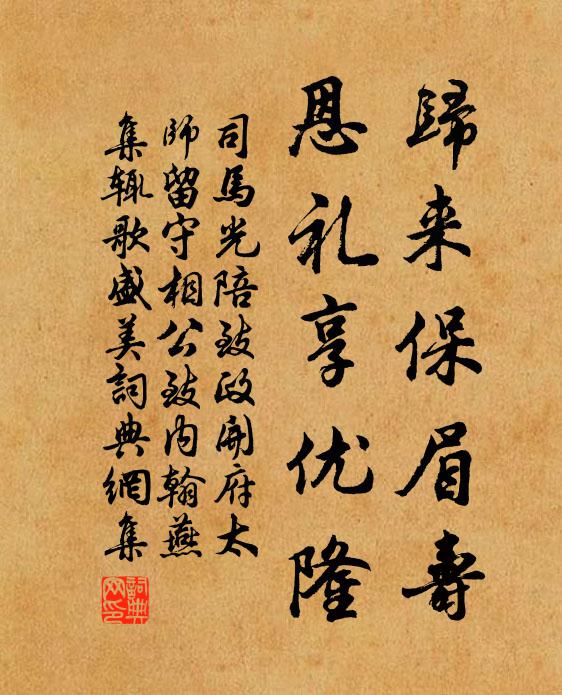 歸来保眉壽
恩礼享优隆
司馬光陪致政開府太
師留守相公致内翰燕
集輒歌盛美詞典網集
詞典網印